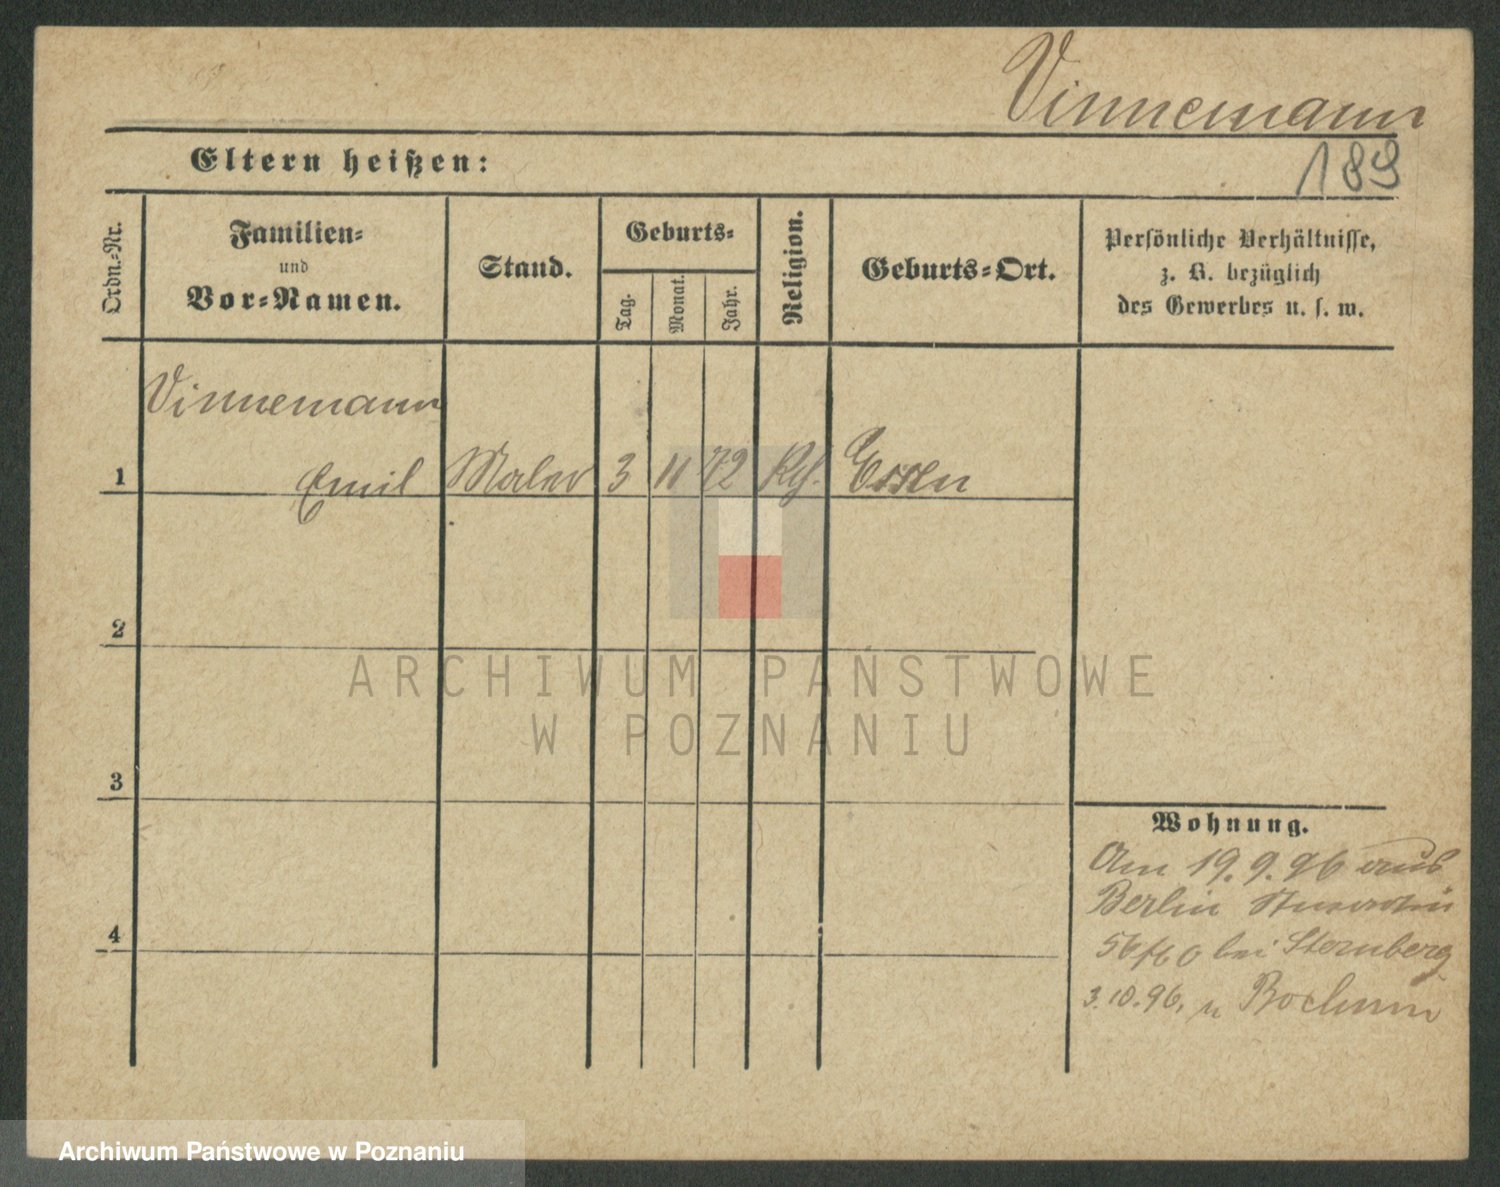 Vinnemann
189
Eltern heißen:
Ordn.-Nr.
Familien-
und
Vor-Namen.
Stand.
Geburts-
Tag.
Monat.
Jahr.
Religion.
Geburts-Ort.
Persönliche Verhältnisse,
z. B. bezüglich
des Gewerbes u. s. w.
Vinnemann
1 Emil Maler 3 11 72 Essen
2
3
4
Wohnung.
Am 19.9.96 aus
Berlin
bei Sternberg
3.10.96. n Bochum
ARCHIWUM PAŃSTWOWE
W POZNANIU
Archiwum Państwowe w Poznaniu